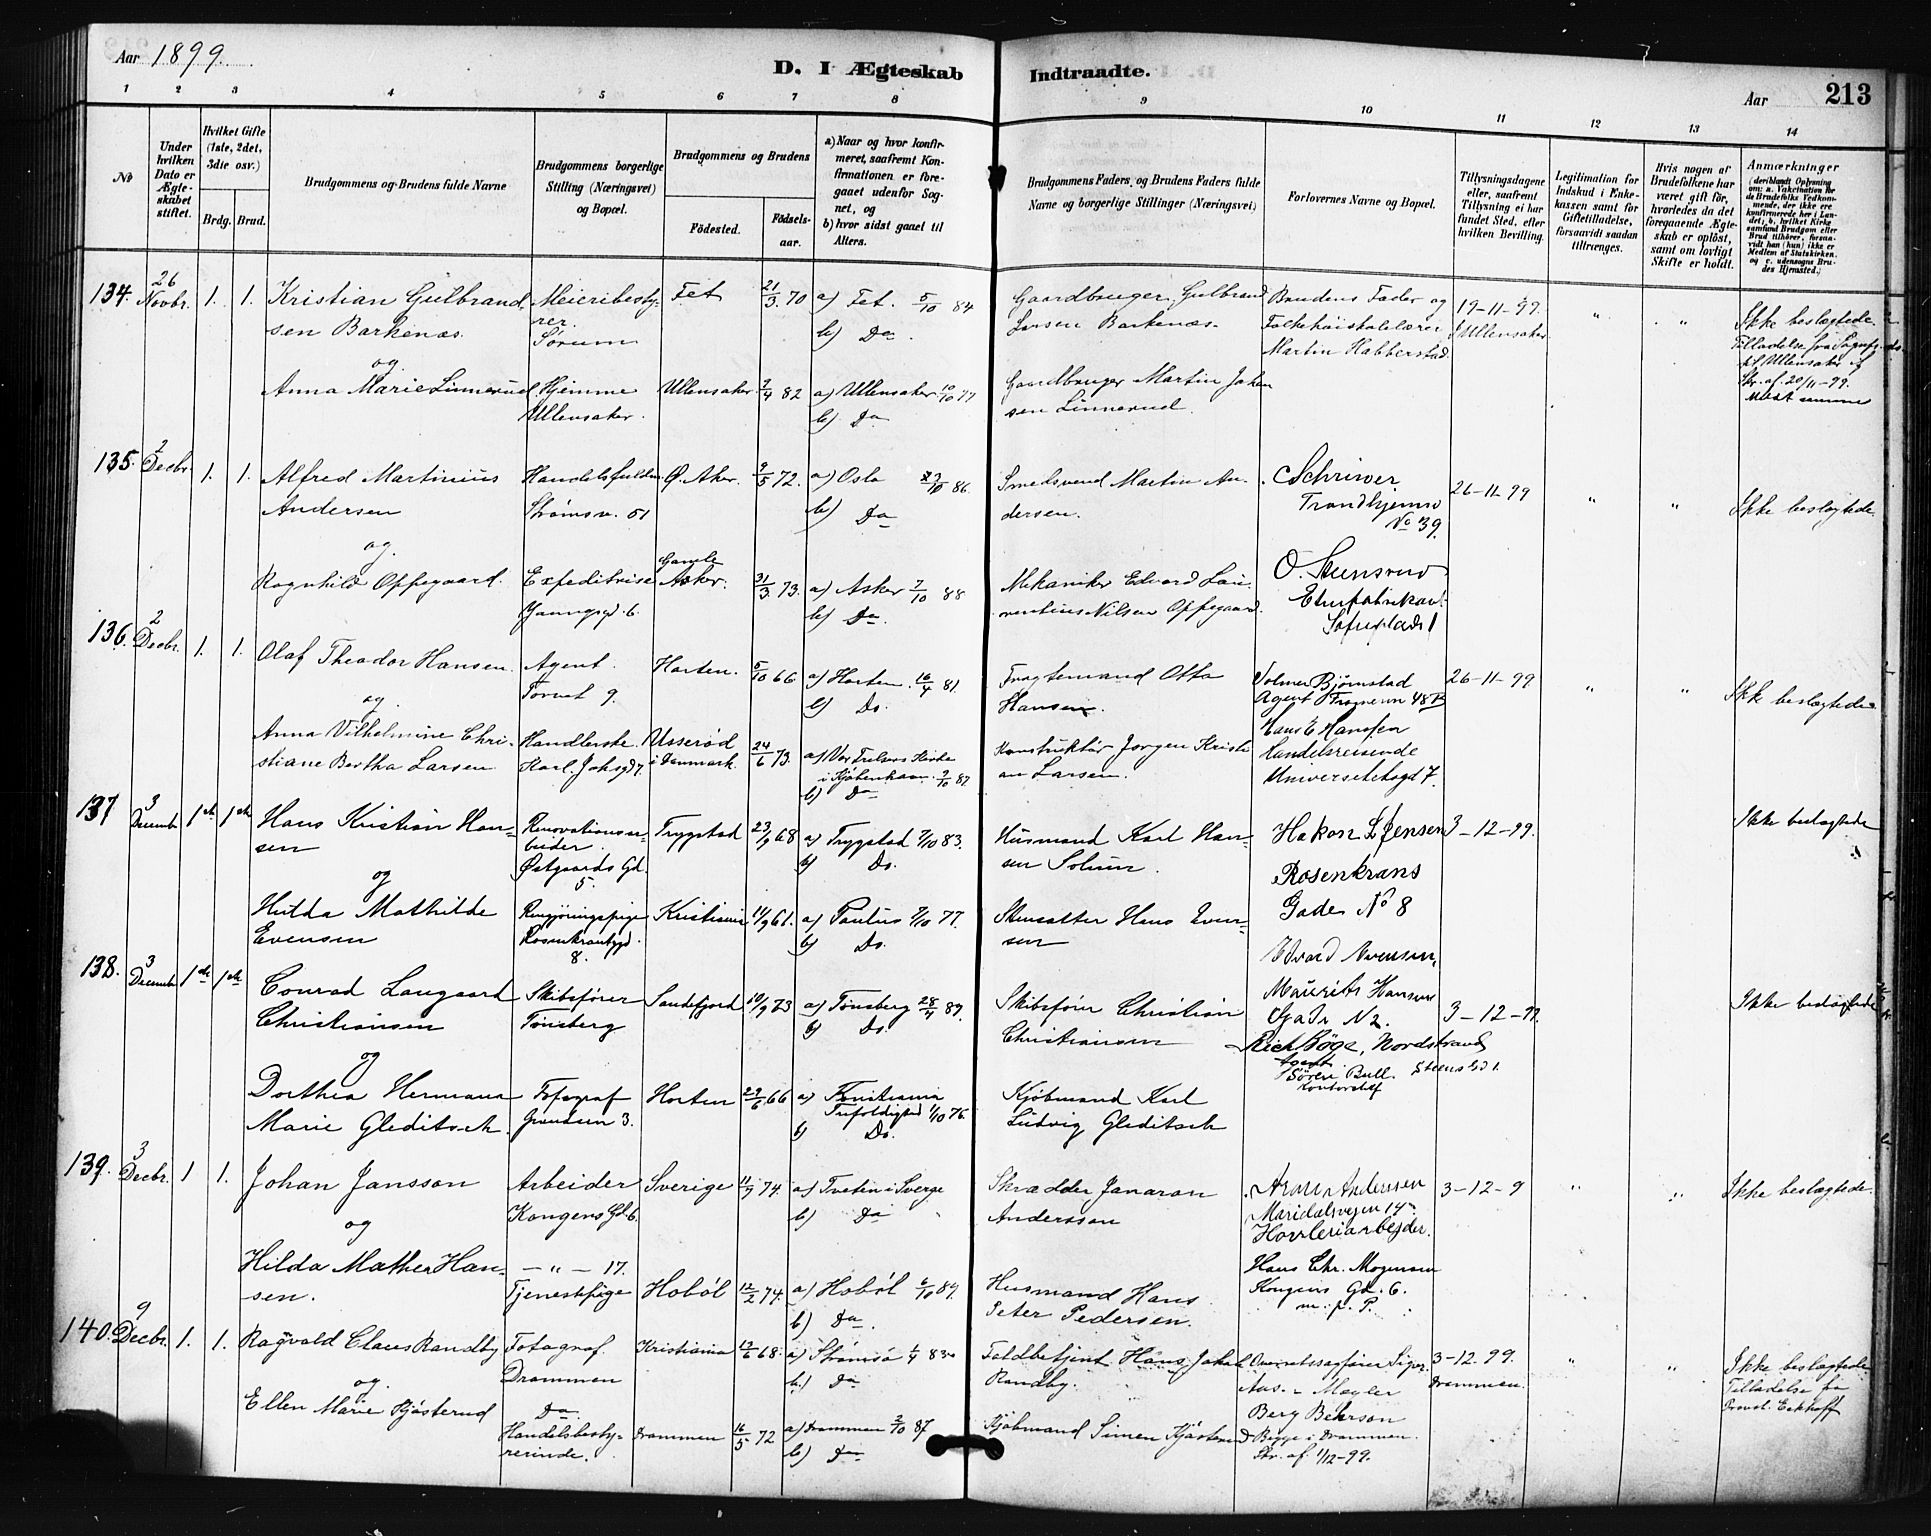 Aar 1899.
D. I Ægteskab
Indtraadte.
Aar
213
1 2 3 4 5 6 7 8 9 10 11 12 13 14
No
Under hvilken Dato er Ægteskabet stiftet.
Hvilket Gifte (1ste, 2det, 3die osv.)
Brdg. Brud.
Brudgommens og Brudens fulde Navne
Brudgommens borgerlige Stilling (Næringsvei) og Bopæl.
Brudgommens og Brudens
Fødested.
Fødselsaar.
a) Naar og hvor konfirmeret, saafremt Konfirmationen er foregaaet udenfor Sognet, og
b) hvor sidst gaaet til Alters.
Brudgommens Faders og Brudens Faders fulde Navne og borgerlige Stillinger (Næringsvei)
Forlovernes Navne og Bopæl.
Tillysningsdagene eller, saafremt Tillysning ei har fundet Sted, efter hvilken Bevilling.
Legitimation for Indskud i Enkekassen samt for Giftetilladelse, forsaavidt saadan tiltrænges.
Hvis nogen af Brudefolkene har været gift før, hvorledes da det foregaaende Ægteskab er opløst, samt om lovligt Skifte er holdt.
Anmærkninger
134. 26 Novbr. 1. 1.
Kristian Gulbrandsen Barkenæs
og
Anna Marie Linnerud
Meieribestyrer. Sørum
Hjemme Ullensaker.
Fet 21/3 70
a) Fet. 5/10 84
b) Do.
Ullensaker 7/4 82
a) Ullensaker 10/10 77
b) Do
Gaardbruger Gulbrand Larsen Barkenæs.
Gaardbruger Martin Johansen Linnerud.
Brudens Fader og Folkehøiskolelærer Martin Habberstad
19-11-99. i Ullensaker
" "
Ikke beslægtede.
135. 2 Decbr. 1. 1.
Alfred Martinius Andersen
og
Ragnhild Oppegaard.
Strømsv. 51
Expeditrise Youngsgd. 6.
Ø. Aker. 9/5 72.
a) Oslo 86.
b) Do
Gamle Aker. 31/3 73.
a) Asker 7/10 88
b) Do.
Smedsvend Martin Andersen.
Mekaniker Edvard Laurentius Nilsen Oppegaard.
Schriwer Trondhjemsv No 39.
O. Stensrud
26-11-99
" "
Ikke beslægtede.
136. 2 Decbr. 1. 1.
Olaf Theodor Hansen.
og
Anna Vilhelmine Christiane Bertha Larsen
Agent. Torvet 9.
Handlerske Karl Johsgd 7.
Horten. 5/10 66
a) Horten. 16/4 81.
b) Do.
Usserød i Danmark. 24/6 73.
a) Vor Frelsers Kirke i Kjøbenhavn. 2/10 87.
b) Do
Fragtemand Otto Hansen.
Konstruktør Jørgen Kristian Larsen.
Volmer Bjørnstad Agent Frognervn 48 B
Hans E Hansen Handelsreisende Universitetsgd 7.
26-11-99
" "
Ikk beslægtede
137 3 Decembr 1ste 1ste
Hans Kristian Hansen
og
Hulda Mathilde Evensen
Renovationsarbeider. Østgaards Gd. 5.
Rengjøringspige Rosenkrantzgd. 8.
Trygstad 23/9 68
a) Trygstad 7/10 83.
b) Do.
Kristiania 11/9 61.
a) Paulus 7/10 77.
b) Do.
Husmand Karl Hansen Solum.
Hans Evensen
Hakon L Jensen
Rosenkrans Gade No 8
Edvard Svensen, Maurits Hansens Gade N 2.
3-12-99.
Ikke beslægtede
138. 3 Decembr 1ste 1ste
Conrad Langaard Christiansen
og
Dorthea Hermana Marie Gleditsch.
Skibsfører Tønsberg
Fotograf Grændsen 3.
Sandefjord 10/9 73
a) Tønsberg 28/4 89.
b) Do.
Horten 23/6 66
a) Kristiania Trefoldighed 1/10 76.
b) Do.
Skibsfører Christian Christiansen
Kjøbmand Karl Ludvig Gleditsch
Rich Bøge, Nordstrand Agent
Søren Bull. Stensgd 1. Kontorchef
3-12-99.
Ikke beslægtede
139. 3 Decbr. 1 1.
Johan Jansson
og
Hilda Mathea Hansen.
Arbeider Kongens Gd. 6.
-"- 17. Tjenestpige
Sverige 11/9 74.
a) Tveten i Sverge
b) Do
Hobøl 12/2 74.
a) Hobøl 6/10 89.
b) Do.
Skrædder Janaron Anderssen
Husmand Hans Peter Pedersen.
Aron Andersen Maridalsvejen 17 Høvleriarbejder.
Hans Chr. Mogensen Kongens Gd. 6. m. p. P.
3-12-9
" "
Ikke beslægtede.
140. 9 Decbr. 1. 1.
Ragvald Claus Randby
og
Ellen Marie Kjøsterud
Fotograf. Drammen
Do Handelsbestyrerinde.
Kristiania 12/6 68.
a) Strømsø 1/4 83
b) Do
Drammen 16/5 72
a) Drammen 2/10 87
b) Do
Toldbetjent Hans Jakob Randby.
Kjøbmand Simen Kjøsterud
Overretssagfører Sigv. Aas. - Mægler Berg Behrson Begge i Drammen. Skr. af 1/12-99.
3-12. 99. Drammen.
" "
Ikke beslægtede Tilladelse fra Provst. Eckhoff